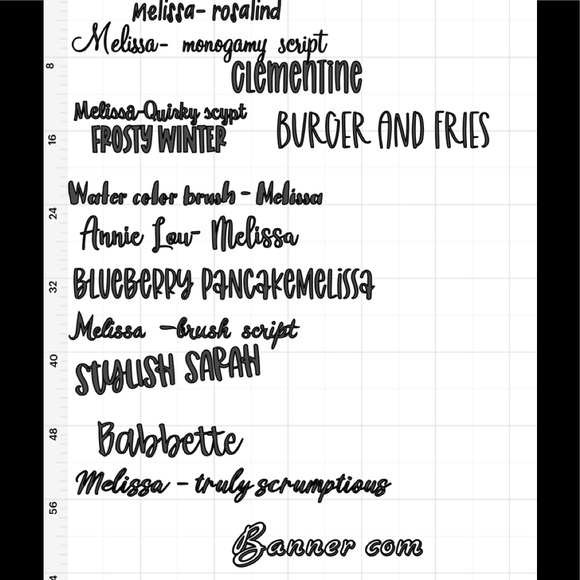 Melissa- rosalind
Melissa- monogamy script
8
clementine
Melissa-Quirky scypt
FROSTY WINTER
BURGER AND FRIES
16
Water color brush - Melissa
24
Annie Lou- Melissa
BLUEBERRY PANCAKEMELISSA
32
Melissa -brush script
STYLISH SARAH
40
Babbette
48
Melissa - truly scrumptious
56
Banner com